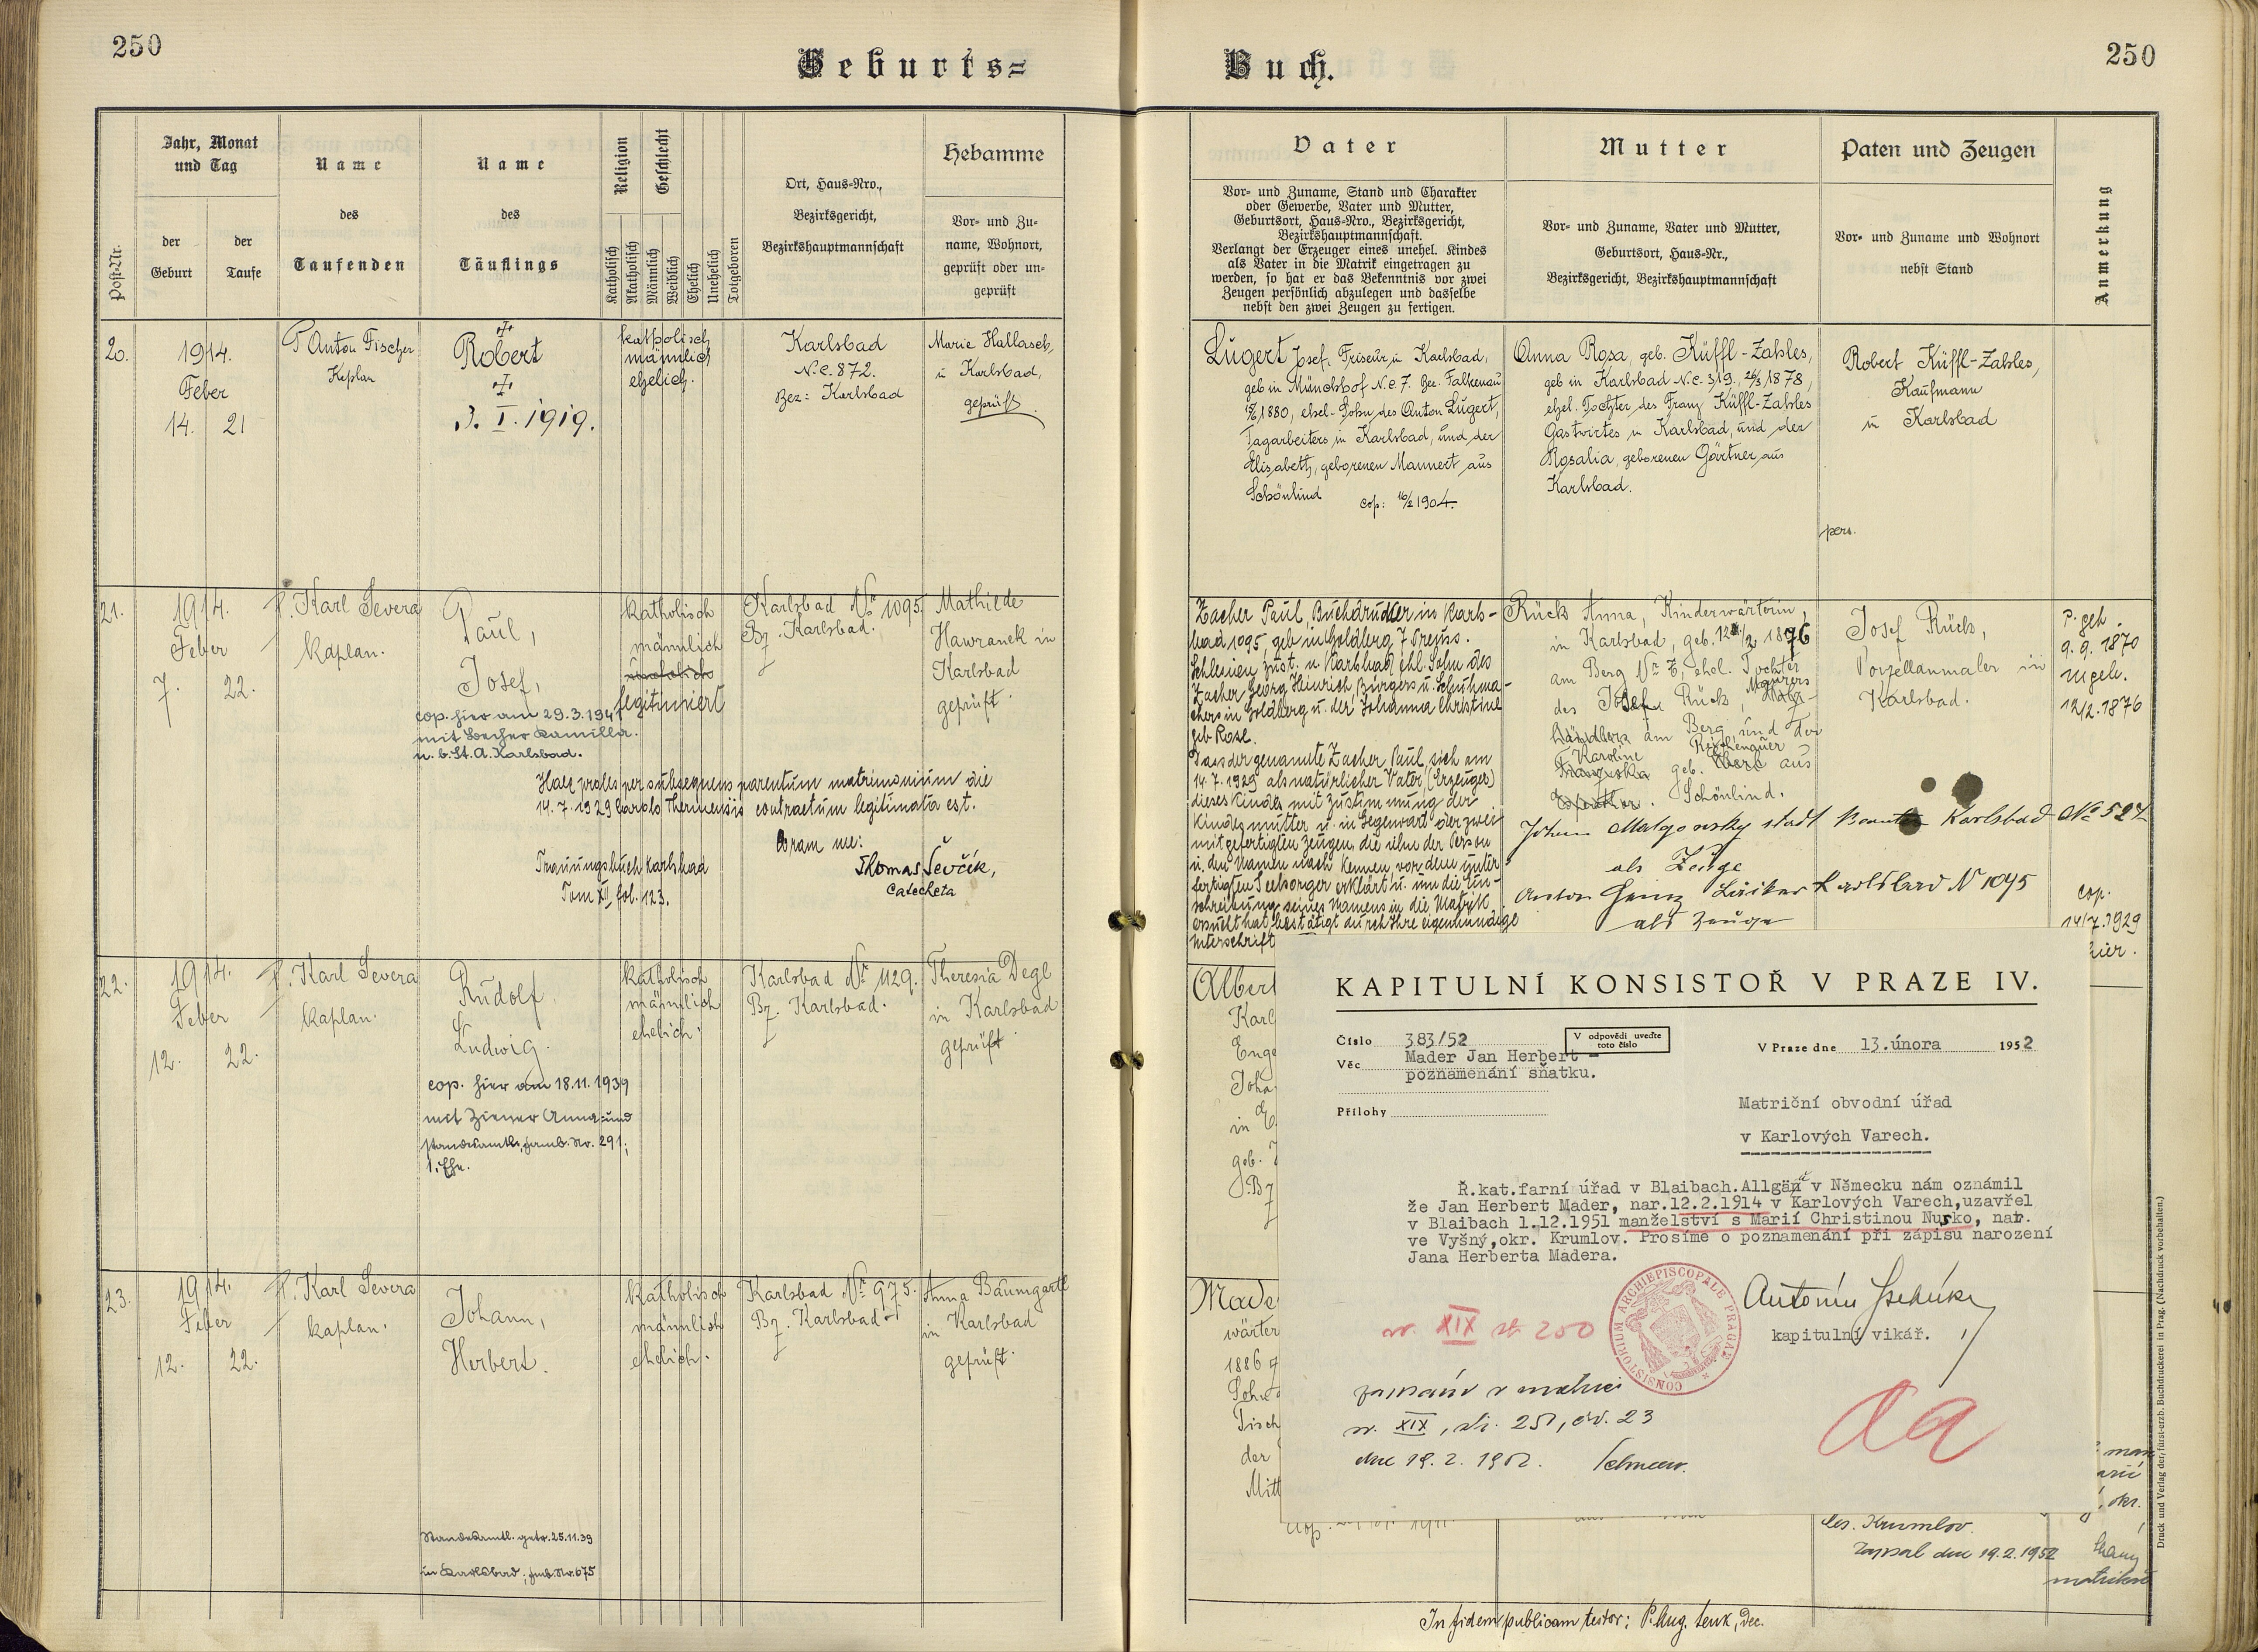 250
Geburts=
Jahr, Monat
und Tag
Name
Name
Religion
Geschlecht
Hebamme
Post-Nr.
der
Geburt
der
Taufe
des
Taufenden
des
Täuflings
Katholisch
Akatholisch
Männlich
Weiblich
Ehelich
Unehelich
Totgeboren
Ort, Haus=Nro.,
Bezirksgericht,
Bezirkshauptmannschaft
Vor= und Zu=
name, Wohnort,
geprüft oder un=
geprüft
20.
1914.
Feber
14. 21
P Anton Fischer
Kaplan
Robert
3. I. 1919.
katholisch
männlich
ehelich.
Karlsbad
N.C. 872.
Bez: Karlsbad
Marie Hallasch,
in Karlsbad,
geprüft
21.
1914.
Feber
7. 22.
P. Karl Severa
Kaplan.
Paul,
Josef,
cop. hier am 29.3.1941
mit Kamilla.
u. b. St. A. Karlsbad.
katholisch
männlich
legitimiert
Karlsbad Nr. 1095.
Bz. Karlsbad.
Mathilde
Hawranek in
Karlsbad
geprüft.
Haec proles per subsequens parentum matrimonium die
14.7.1929 Carolo Thermensis contractum legitimata est.
Coram me:
Thomas Ševčík,
Catecheta
Trauungsbuch Karlsbad
Tom XII, fol. 123.
22.
1914.
Feber
12. 22.
P. Karl Severa
Kaplan.
Rudolf
Ludwig.
cop. hier am 18.11.1939
mit Ziener Anna und
standesamtl., Famb. Nr. 291;
1. Ehe.
katholisch
männlich
ehelich.
Karlsbad Nr. 1129.
Bz. Karlsbad.
Theresia Degl
in Karlsbad
geprüft.
23.
1914.
Feber
12. 22.
P. Karl Severa
Kaplan.
Johann,
Herbert.
Standesamtl. getr. 25.11.39
in Karlsbad; Fmb. Nr. 675
katholisch
männlich
ehelich.
Karlsbad Nr. 975.
Bz. Karlsbad
Anna Baumgartl
in Karlsbad
geprüft.
250
Buch.
Vater
Mutter
Paten und Zeugen
Anmerkung
Vor= und Zuname, Stand und Charakter
oder Gewerbe, Vater und Mutter,
Geburtsort, Haus=Nro., Bezirksgericht,
Bezirkshauptmannschaft.
Verlangt der Erzeuger eines unehel. Kindes
als Vater in die Matrik eingetragen zu
werden, so hat er das Bekenntnis vor zwei
Zeugen persönlich abzulegen und dasselbe
nebst den zwei Zeugen zu fertigen.
Vor= und Zuname, Vater und Mutter,
Geburtsort, Haus=Nr.,
Bezirksgericht, Bezirkshauptmannschaft
Vor= und Zuname und Wohnort
nebst Stand
Lugert Josef, Friseur in Karlsbad,
geb in Münchhof N.C. 7. Bez. Falkenau
1880, ehel. Sohn des Anton Lugert,
Tagarbeiters in Karlsbad, und der
Elisabeth, geborenen Mannert aus
Schönlind cop: 16/2 1904.
Anna Rosa, geb. Küffl-Zahles,
geb in Karlsbad N.C. 319. 26/3 1878,
ehel. Tochter des Franz Küffl-Zahles
Gastwirtes in Karlsbad, und der
Rosalia, geborenen Gärtner aus
Karlsbad.
Robert Küffl-Zahles,
Kaufmann
in Karlsbad
pers.
Zacher Paul, Buchdrucker in Karls-
bad 1095, geb. in Goldberg, Preuss.
Schlesien, zust. n. Karlsbad, ehl. Sohn des
Zacher Georg Heinrich, Bürgers u. Schuhma-
chers in Goldberg u. der Johanna Christine
geb Rose.
Dass der genannte Zacher Paul sich am
14.7.1929 als natürlicher Vater (Erzeuger)
dieses Kindes mit Zustimmung der
Kindesmutter u. in Gegenwart der zwei
mitgefertigten Zeugen, die ihn der Person
u. dem Namen nach kennen, vor dem unter
fertigten Seelsorger erklärt u. um die Ein-
schreibung seines Namens in die Matrik
ersucht hat, bestätigt durch Ihre eigenhändige
Unterschrift
Rück Anna, Kinderwärterin,
in Karlsbad, geb. 12/2 1876
am Berg Nr. 3, ehel. Tochter
des Josef Rück, Maurers
am Berg, und der
Karoline geb. aus
Schönlind.
Josef Rück,
Porzellanmaler in
Karlsbad.
P. geb.
9.9.1870
m geb.
12/2.1876
Johann Matgonsky stadt Beamter Karlsbad No 527
als Zeuge
Anton Karlsbad N 1095
als Zeuge
cop.
14/7.1929
hier.
Albert
Karl
Enge
Joha
in
geb.
Bz
Made
wärter
1886
Sohn
Tisch
der
Mitt
KAPITULNÍ KONSISTOŘ V PRAZE IV.
Číslo 383/52
V odpovědi uveďte
toto číslo
V Praze dne 13.února 1952
Věc Mader Jan Herbert –
poznamenání sňatku.
Přílohy
Matriční obvodní úřad
v Karlových Varech.
Ř.kat.farní úřad v Blaibach.Allgän v Německu nám oznámil
že Jan Herbert Mader, nar.12.2.1914 v Karlových Varech,uzavřel
v Blaibach 1.12.1951 manželství s Marií Christinou Nusko, nar.
ve Vyšný,okr. Krumlov. Prosíme o poznamenání při zápisu narození
Jana Herberta Madera.
CONSISTORIUM ARCHIEPISCOPALE PRAGAE
kapitulní vikář.
sv. XIX str 250
zapsáno v matrici
sv. XIX, str. 250, čís. 23
dne 19.2.1952.
aa
les. Krumlov.
Zapsal dne 19.2.1952
okr.
In fidem publicam testor: P. Aug. Lenk, Dec.
Druck und Verlag der fürst=erzb. Buchdruckerei in Prag. (Nachdruck vorbehalten.)